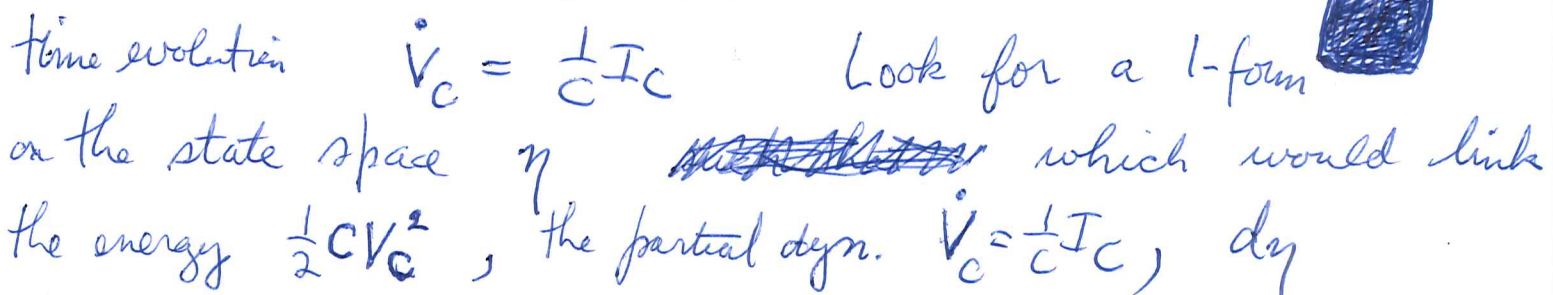 time evolution V̇_C = 1/C I_C Look for a 1-form
on the state space η which would link
the energy 1/2 CV_C^2, the partial dyn. V̇_C = 1/C I_C, dη